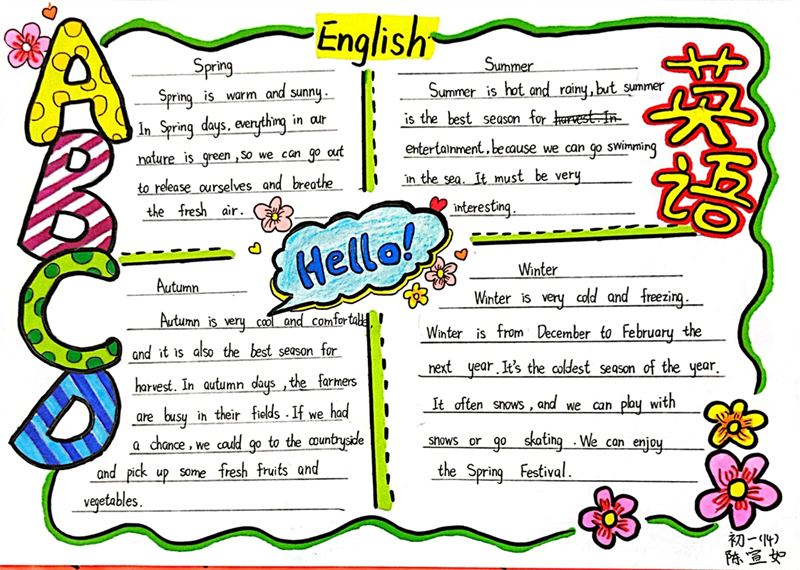 English
A
B
C
D
英语
Hello!
Spring
Spring is warm and sunny.
In Spring days, everything in our
nature is green, so we can go out
to release ourselves and breathe
the fresh air.
Summer
Summer is hot and rainy, but summer
is the best season for harvest. In
entertainment, because we can go swimming
in the sea. It must be very
interesting.
Autumn
Autumn is very cool and comfortable
and it is also the best season for
harvest. In autumn days, the farmers
are busy in their fields. If we had
a chance, we could go to the countryside
and pick up some fresh fruits and
vegetables.
Winter
Winter is very cold and freezing.
Winter is from December to February the
next year. It's the coldest season of the year.
It often snows, and we can play with
snows or go skating. We can enjoy
the Spring Festival.
初一(14)
陈宣如